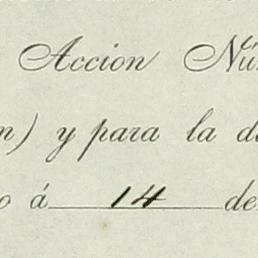 Accion Nú
n) y para la d
o á 14 de